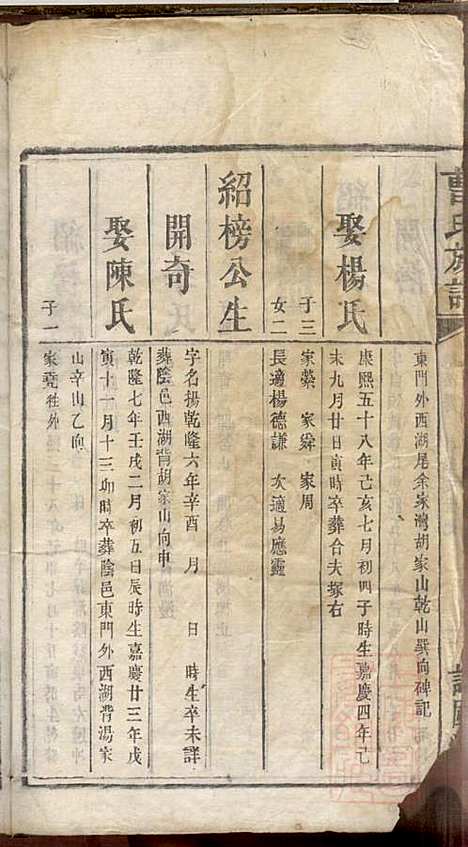 曹氏族譜
東門外西湖尾余家灣胡家山乾山巽向碑記
娶楊氏
康熙五十八年己亥七月初四子時生嘉慶四年己
未九月廿日寅時卒葬合夫塚右
子三
家蘩 家舜 家周
女二
長適楊德謙 次適易應靈
紹榜公生
開奇
字名揚乾隆六年辛酉 月 日 時生卒未詳
葬陰邑西湖背胡家山向申
娶陳氏
乾隆七年壬戌二月初五日辰時生嘉慶廿三年戊
寅十一月十三卯時卒葬陰邑東門外西湖背湯家
山辛山乙向
子一
家堯 徃外